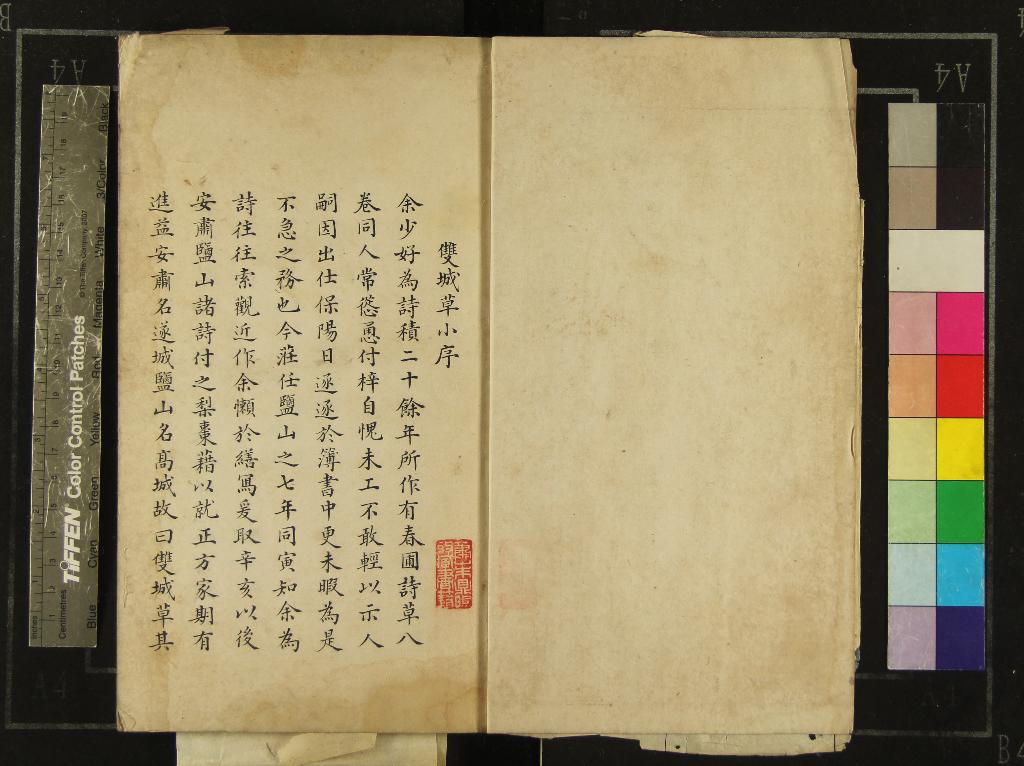 雙城草小序
余少好為詩積二十餘年所作有春圃詩草八
卷同人常慫恿付梓自愧未工不敢輕以示人
嗣因出仕保陽日逐逐於簿書中更未暇為是
不急之務也今蒞任鹽山之七年同寅知余為
詩往往索觀近作余懶於繕寫爰取辛亥以後
安肅鹽山諸詩付之梨棗藉以就正方家期有
進益安肅名遂城鹽山名高城故曰雙城草其
TIFFEN Color Control Patches
© The Tiffen Company, 2007
Blue Cyan Green Yellow Red Magenta White 3/Color Black
Inches
Centimetres
A4
A4
A4
B